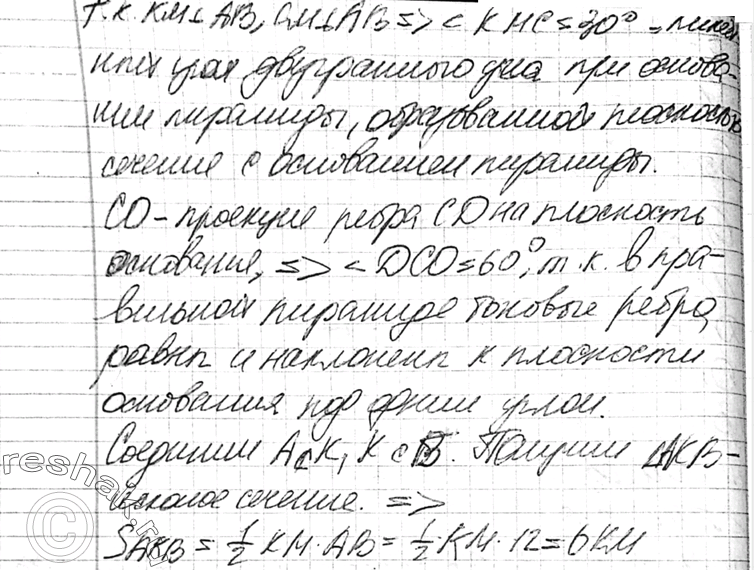 т.к. KM⊥AB, CM⊥AB => <KMC=30° - линей-
ный угол двугранного угла при основа-
нии пирамиды, образованной плоскостью
сечение с основанием пирамиды.
CO - проекция ребра CD на плоскость
основания, => <DCO=60°, т.к. в пра-
вильной пирамиде боковые ребра
равны и наклонены к плоскости
основания под одним углом.
Соединим A с K, K с B. Получим ΔAKB -
искомое сечение. =>
S AKB = 1/2 KM · AB = 1/2 · KM · 12 = 6KM
reshak.ru